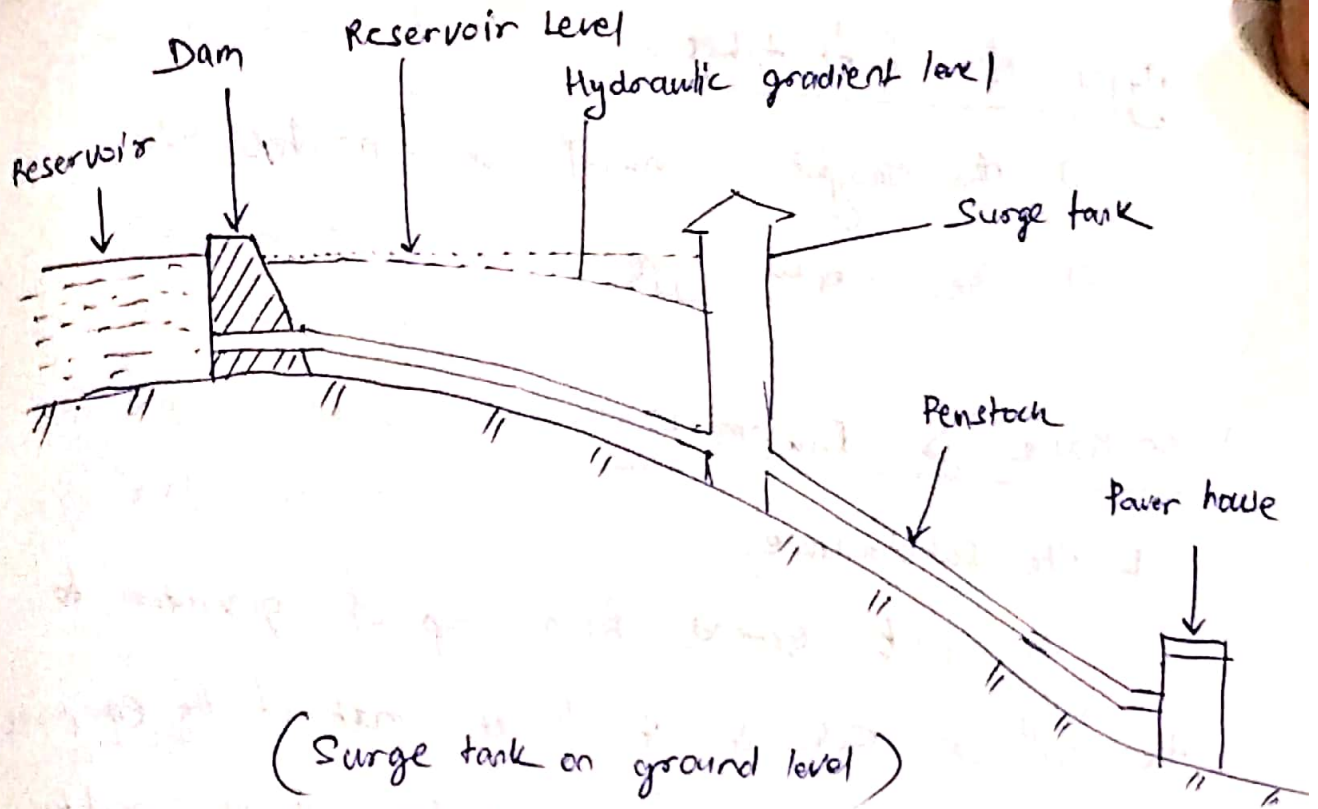 Dam
Reservoir Level
Hydraulic gradient level
Reservoir
Surge tank
Penstock
Power house
(Surge tank on ground level)